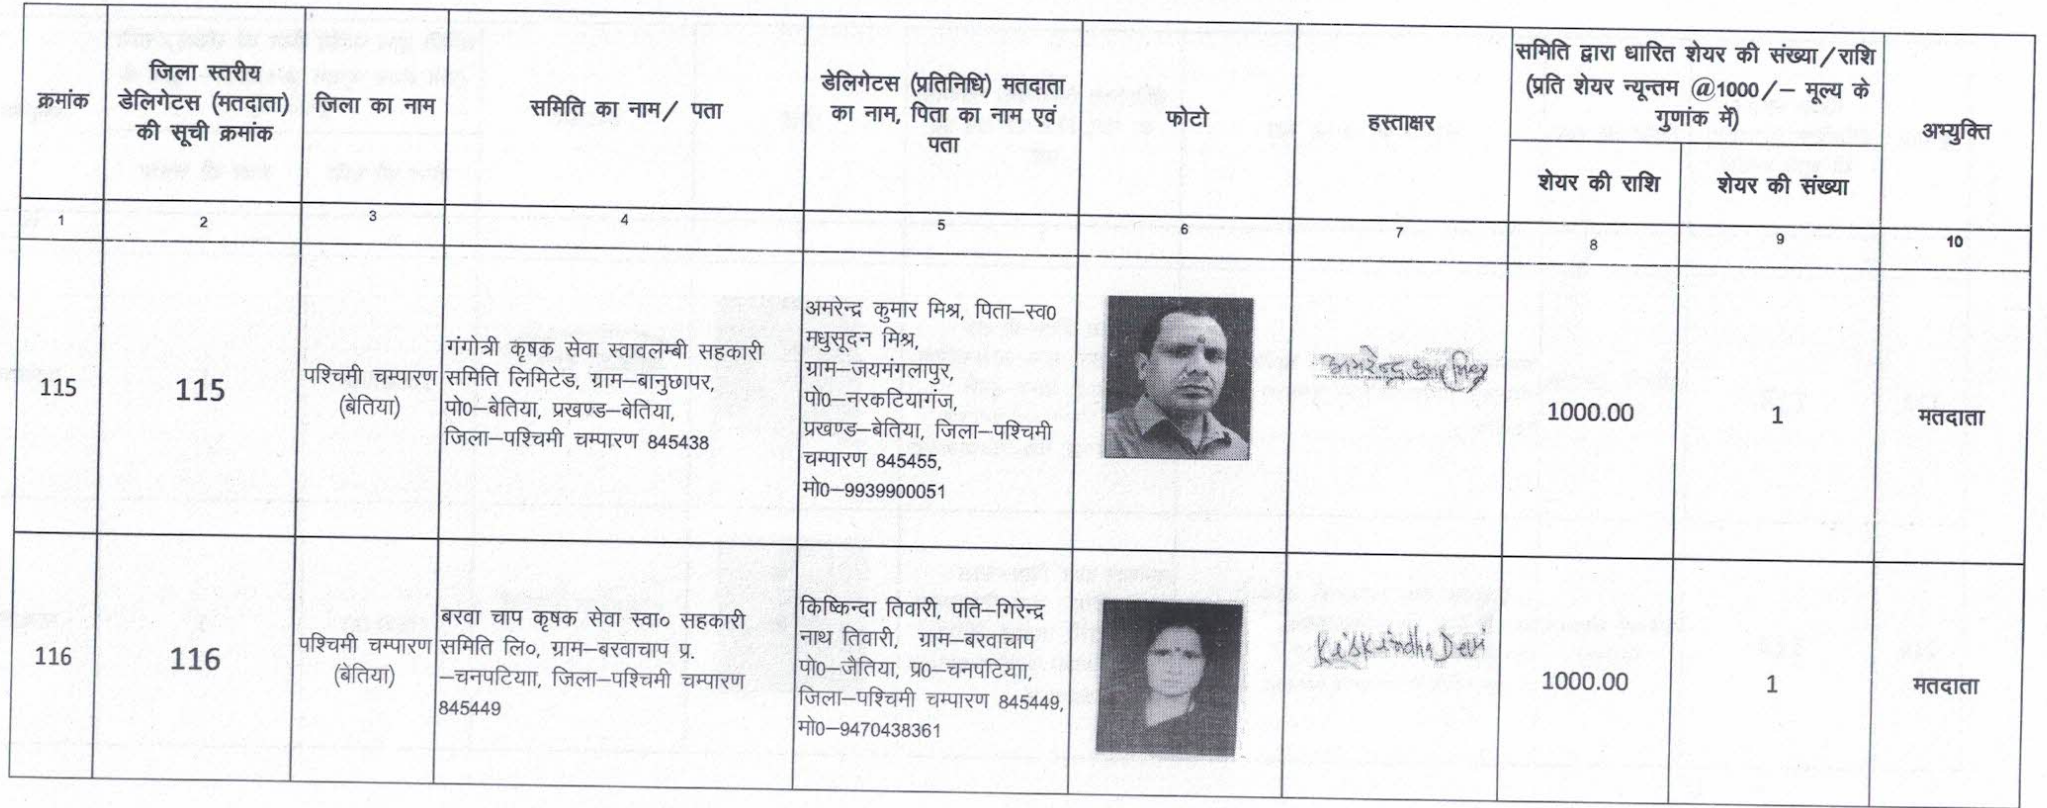 क्रमांक
जिला स्तरीय
डेलिगेटस (मतदाता)
की सूची क्रमांक
जिला का नाम
समिति का नाम/ पता
डेलिगेटस (प्रतिनिधि) मतदाता
का नाम, पिता का नाम एवं
पता
फोटो
हस्ताक्षर
समिति द्वारा धारित शेयर की संख्या/राशि
(प्रति शेयर न्यून्तम @1000/– मूल्य के
गुणांक में)
शेयर की राशि
शेयर की संख्या
अभ्युक्ति
1
2
3
4
5
6
7
8
9
10
115
115
पश्चिमी चम्पारण
(बेतिया)
गंगोत्री कृषक सेवा स्वावलम्बी सहकारी
समिति लिमिटेड, ग्राम–बानुछापर,
पो0–बेतिया, प्रखण्ड–बेतिया,
जिला–पश्चिमी चम्पारण 845438
अमरेन्द्र कुमार मिश्र, पिता–स्व0
मधुसूदन मिश्र,
ग्राम–जयमंगलापुर,
पो0–नरकटियागंज,
प्रखण्ड–बेतिया, जिला–पश्चिमी
चम्पारण 845455,
मो0–9939900051
अमरेन्द्र कुमार मिश्र
1000.00
1
मतदाता
116
116
पश्चिमी चम्पारण
(बेतिया)
बरवा चाप कृषक सेवा स्वा० सहकारी
समिति लि०, ग्राम–बरवाचाप प्र.
–चनपटियाा, जिला–पश्चिमी चम्पारण
845449
किष्किन्दा तिवारी, पति–गिरेन्द्र
नाथ तिवारी, ग्राम–बरवाचाप
पो0–जैतिया, प्र0–चनपटियाा,
जिला–पश्चिमी चम्पारण 845449,
मो0–9470438361
Kiskindhi Devi
1000.00
1
मतदाता